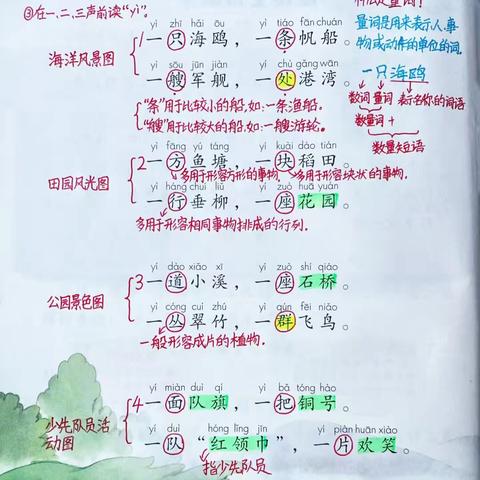 ③在一、二、三声前读“yì”。
量词是用来表示人、事
物或动作的单位的词。
yì zhī hǎi ōu yì tiáo fān chuán
1一只海鸥，一条帆船。
海洋风景图
yì sōu jūn jiàn yí chù gǎng wān
一艘军舰，一处港湾。
一只海鸥
数词 量词 表示名称的词语
数量词 +
数量短语
“条”用于比较小的船，如：一条渔船。
“艘”用于比较大的船，如：一艘游轮。
yì fāng yú táng yí kuài dào tián
2一方鱼塘，一块稻田。
多用于形容方形的事物
多用于形容块状的事物。
田园风光图
yì háng chuí liǔ yí zuò huā yuán
一行垂柳，一座花园。
多用于形容相同事物排成的行列。
yí dào xiǎo xī yí zuò shí qiáo
3一道小溪，一座石桥。
公园景色图
yì cóng cuì zhú yì qún fēi niǎo
一丛翠竹，一群飞鸟。
一般形容成片的植物。
yí miàn duì qí yì bǎ tóng hào
4一面队旗，一把铜号。
少先队员活
动图
yí duì hóng lǐng jīn yí piàn huān xiào
一队“红领巾”，一片欢笑。
指少先队员